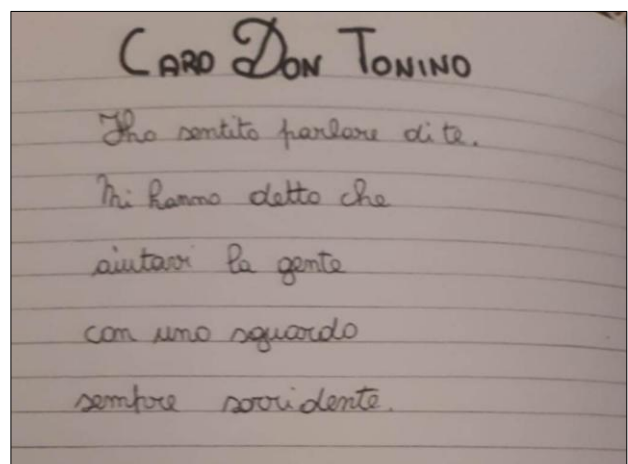 CARO DON TONINO
Ho sentito parlare di te.
Mi hanno detto che
aiutavi la gente
con uno sguardo
sempre sorridente.